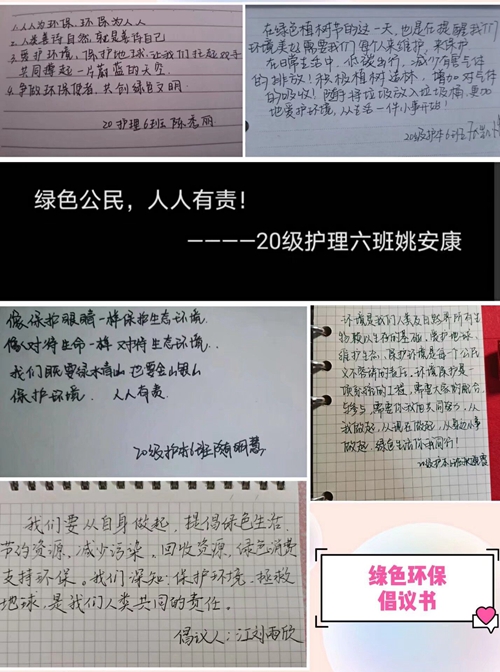 1.人人为环保,环保为人人
2.人类善待自然,就是善待自己
3.爱护环境,保护地球,让我们托起双手
共同撑起一片蔚蓝的天空
4.争做环保使者,共创绿色文明
20护理6班 陈秀丽
在绿色植树节的这一天,也是在提醒我们
环境美好需要我们每个人来维护,来保护
在日常生活中,低碳出行,减少有害气体
的排放!积极植树造林,增加对气体
的吸收!随手将垃圾放入垃圾桶,更加
地爱护环境,从生活一件小事开始!
20级护本6班
绿色公民,人人有责!
————20级护理六班姚安康
像保护眼睛一样保护生态环境
像对待生命一样对待生态环境
我们既要绿水青山也要金山银山
保护环境 人人有责
20级护本6班 明慧
环境是我们人类及自然界所有生
物赖以生存的基础,爱护地球,
维护生态,保护环境是每个公民
义不容辞的责任,环境保护是一
项系统的工程,需要大家的配合
与参与,需要你我他共同努力,从
我做起,从现在做起,从身边小事
做起,绿色生活你我同行!
20级护本6班
我们要从自身做起,提倡绿色生活,
节约资源,减少污染,回收资源,绿色消费
支持环保。我们深知:保护环境,拯救
地球,是我们人类共同的责任。
倡议人:江刘雨欣
绿色环保
倡议书